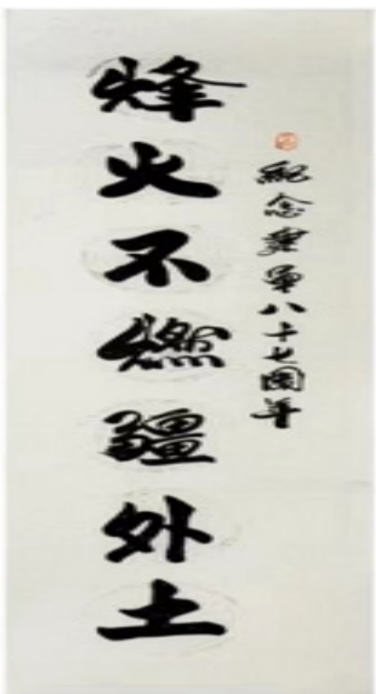 紀念建軍八十七周年
烽火不燃疆外土